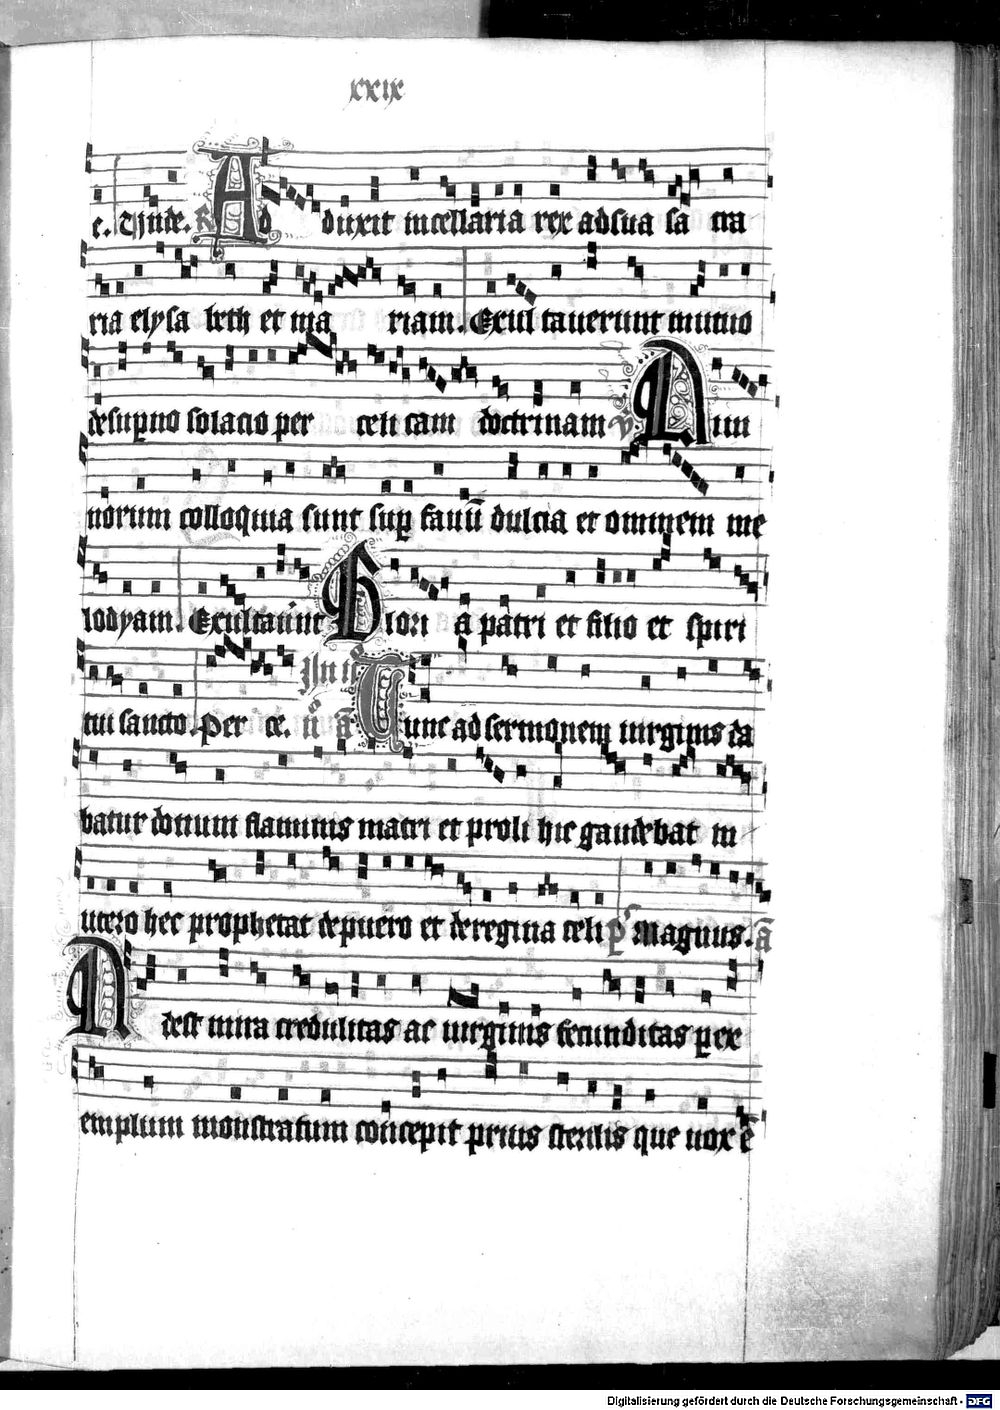 xxix
e. Vnde. R Ad duxit in cellaria rex ad sua sa cra
ria elysa beth et ma riam. Exul tauerunt mutuo
desupno solacio per celi cam doctrinam V A nii
norum colloquia sunt sup fauū dulcia et omnem me
lodyam. Exultauerūt Glori a patri et filio et spiri
tui sancto. Per ce. In ii n̄ a Tunc ad sermonem uirginis da
batur donum flaminis matri et proli hic gaudebat in
utero hec prophetat de puero et de regina celi ps Magnus. a
Adest mira credulitas ac uirginis fecunditas per ex
emplum monstratum concepit prius sterilis que uox ē
Digitalisierung gefördert durch die Deutsche Forschungsgemeinschaft - DFG